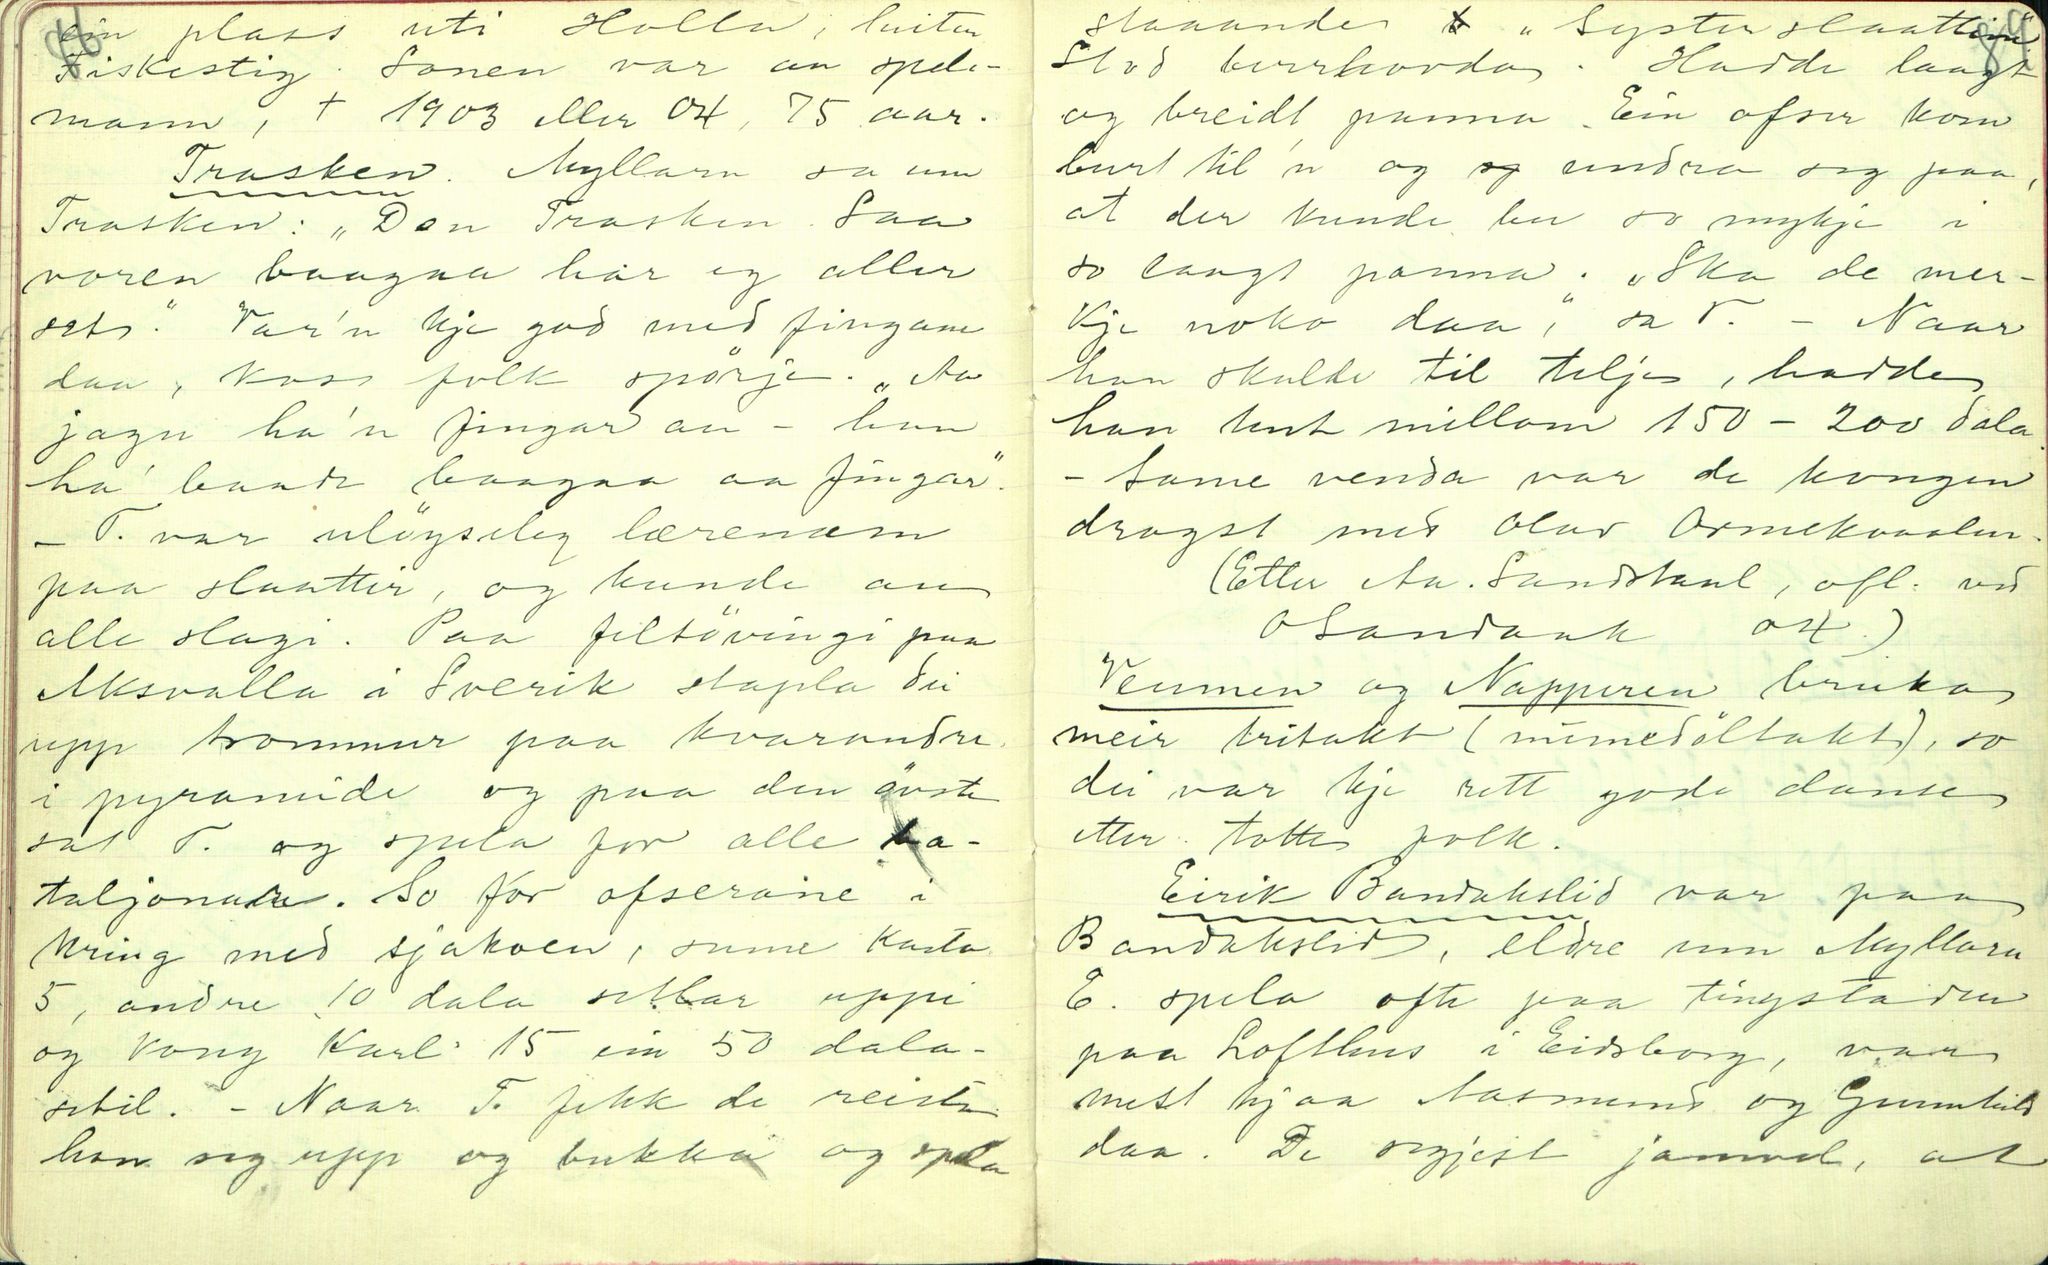 ein plass uti Holla, heiter
Fiskestig. Sonen var au spele-
mann, † 1903 eller 04, 75 aar.
Trasken. Myllarn sa um
Trasken: „Den Trasken. Saa
voren baagaa har eg aller
sets". Var'n kje god med fingane
daa, kass folk spörje. „Aa
jagu ha'n fingar au – han
ha' baade baagaa aa fingar".
– T. var ulöyseleg lærenæm
paa slaattir, og kunde au
alle slagi. Paa feltövingi paa
Aksvalla i Sverik stapla dei
upp trommur paa kvarandre
i pyramide og paa den övste
sat T. og spela for alle ba-
taljonane. So for ofserane i
kring med sjakoen, sume kasta
5, andre 10 dala setlar uppi
og kong Karl 15 ein 50 dala-
setil. – Naar T. fekk de reiste
han seg upp og bukka og spela
84
staaande „Systerslaattin".
Stod berrhovda. Hadde laagt
og breidt panna. Ein ofser kom
burt til'n og undra seg paa,
at der kunde bu so mykje i
so laagt panna. „Ska de mer-
kje noko daa," sa T. – Naar
han skulde til telje, hadde
han tent millom 150 – 200 dala.
– Same venda var de kongen
drogst med Olav Ormekaasen.
(Etter Aa. Sandstaul, ofl. ved
O Sandaak 04.)
Veumen og Napperen bruka
meir tritakt (minnedöltakt), so
dei var kje rett gode danse
etter totte folk.
Eirik Bandakslid var paa
Bandakslid, eldre enn Myllarn
E. spela ofte paa tingstaden
paa Lofthus i Eidsborg, var
mest hjaa Aasmund og Gunnhild
daa. De segjest jamvel, at